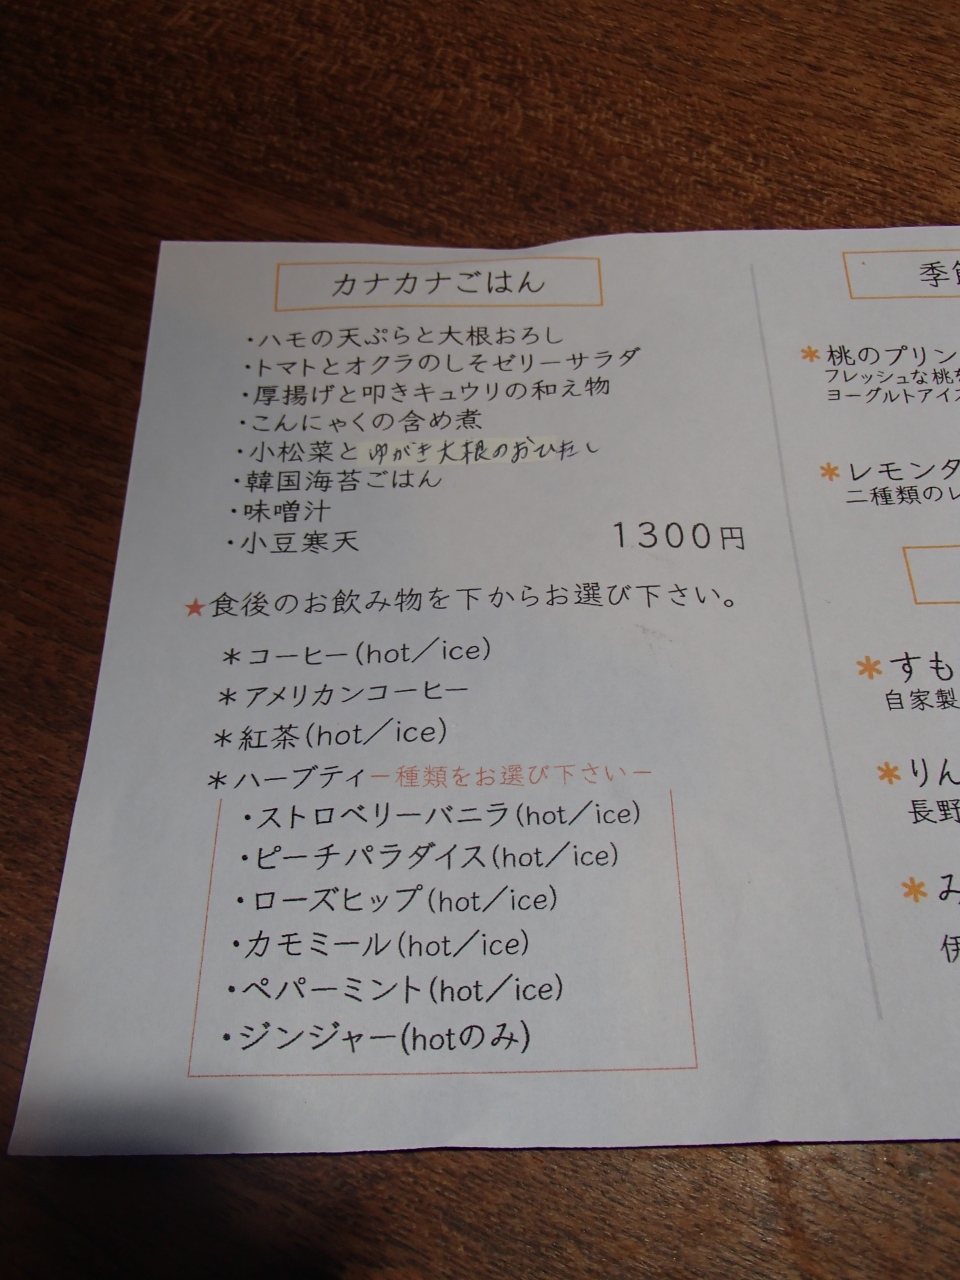 カナカナごはん
・ハモの天ぷらと大根おろし
・トマトとオクラのしそゼリーサラダ
・厚揚げと叩きキュウリの和え物
・こんにゃくの含め煮
・小松菜とゆがき大根のおひたし
・韓国海苔ごはん
・味噌汁
・小豆寒天
1300円
★食後のお飲み物を下からお選び下さい。
＊コーヒー(hot／ice)
＊アメリカンコーヒー
＊紅茶(hot／ice)
＊ハーブティー種類をお選び下さいー
・ストロベリーバニラ(hot／ice)
・ピーチパラダイス(hot／ice)
・ローズヒップ(hot／ice)
・カモミール(hot／ice)
・ペパーミント(hot／ice)
・ジンジャー(hotのみ)
季節
＊桃のプリン
フレッシュな桃を
ヨーグルトアイス
＊レモンタ
二種類のレ
＊すも
自家製
＊りん
長野
＊み
伊